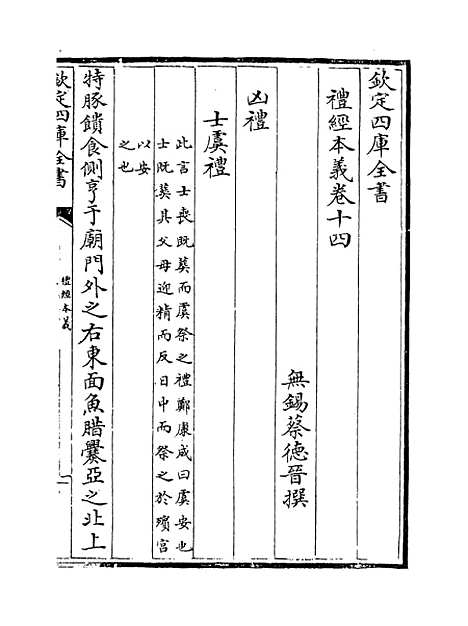 欽定四庫全書
禮經本義卷十四
無錫蔡德晉撰
凶禮
士虞禮
此言士喪既葬而虞祭之禮鄭康成曰虞安也
士既葬其父母迎精而反日中而祭之於殯宮
以安
之也
特豚饋食側亨于廟門外之右東面魚腊爨亞之北上
欽定四庫全書
禮經本義